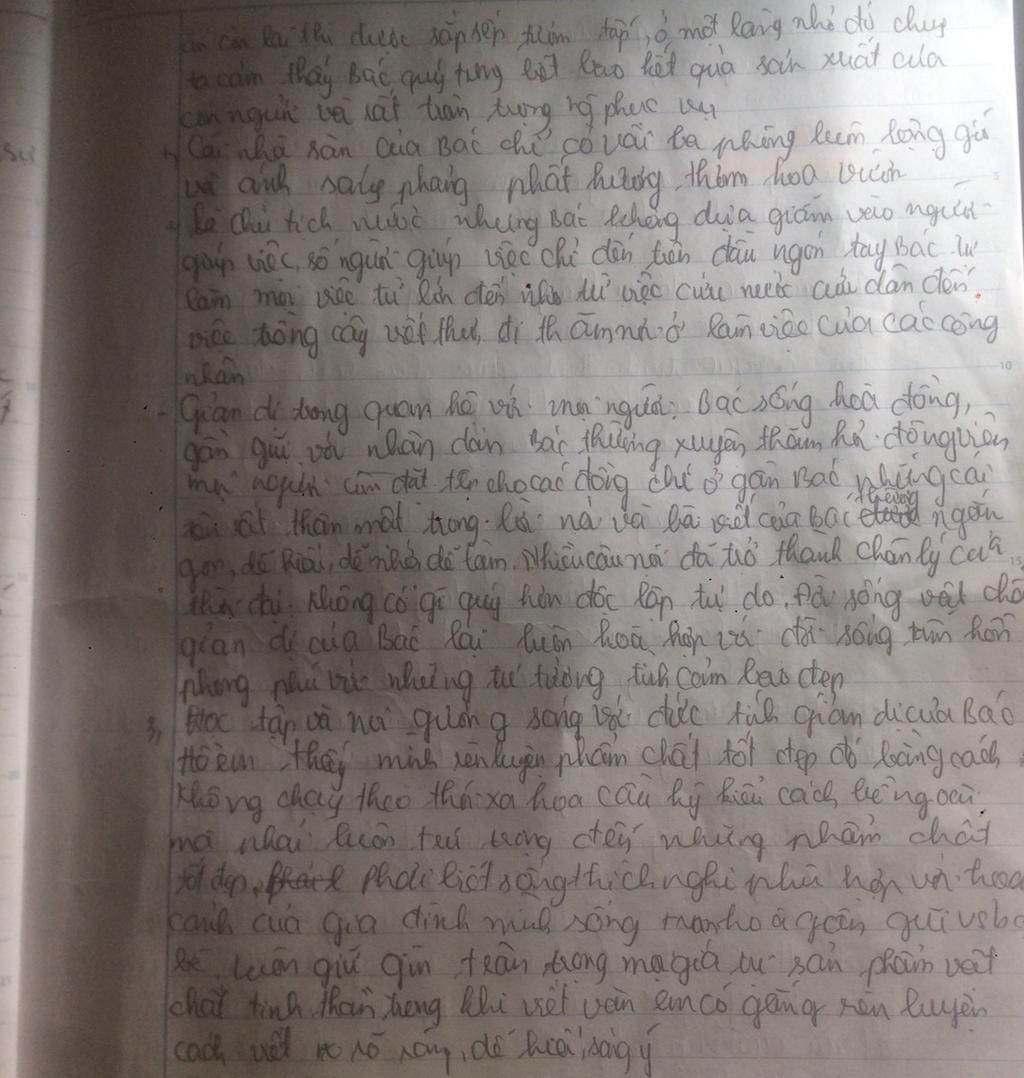 ăn còn lại thì được sắp sếp tươm tấp, ở một lang nhỏ đó chug
ta cảm thấy Bác quý tưng biết bao kết quả sản xuất của
con người và rất trân trọng ng phục vụ
Cái nhà sàn của Bác chỉ có vài ba phòng luôn lộng gió
và ánh sáng phảng phất hương thơm hoa vườn
Là chủ tịch nước nhưng Bác không dựa giẫm vào người
giúp việc, số người giúp việc chỉ đến trên đầu ngón tay Bác tự
làm mọi việc từ lớn đến nhỏ từ việc cứu nước cứu dân đến
việc trồng cây viết thư, đi thăm nơi ở làm việc của các công
nhân
- Giản dị trong quan hệ với mọi người: Bác sống hoà đồng,
gần gũi với nhân dân Bác thường xuyên thăm hỏi động viên
mọi người còn đặt tên cho các đồng chí ở gần Bác những cái
tên rất thân mật trong lời nó và bài viết của Bác thường ngắn
gọn, dễ hiểu, dễ nhớ, dễ làm. Nhiều câu nói đã trở thành chân lý của
thời đại. Không có gì quý hơn độc lập tự do. Đời sống vật chấ
giản dị của Bác lại luôn hoà hợp với đời sống tâm hồn
phong phú với những tư tưởng tình cảm cao đẹp
3, Học tập và noi gương sáng với đức tính giản dị của Bác
Hồ em thấy mình rèn luyện phẩm chất tốt đẹp đó bằng cách
Không chạy theo thói xa hoa cầu kỳ kiểu cách bề ngoài
mà phải luôn trú trọng đến những phẩm chất
tốt đẹp, phải biết sống thích nghi phù hợp với hoà
cảnh của gia đình mình sống chan hoà gần gũi vs bạ
bè, luôn giữ gìn trân trọng mọi giá trị sản phẩm vật
chất tinh thần trong khi viết văn em có gắng rèn luyện
cách viết rõ ràng, dễ hiểu, sáng ý